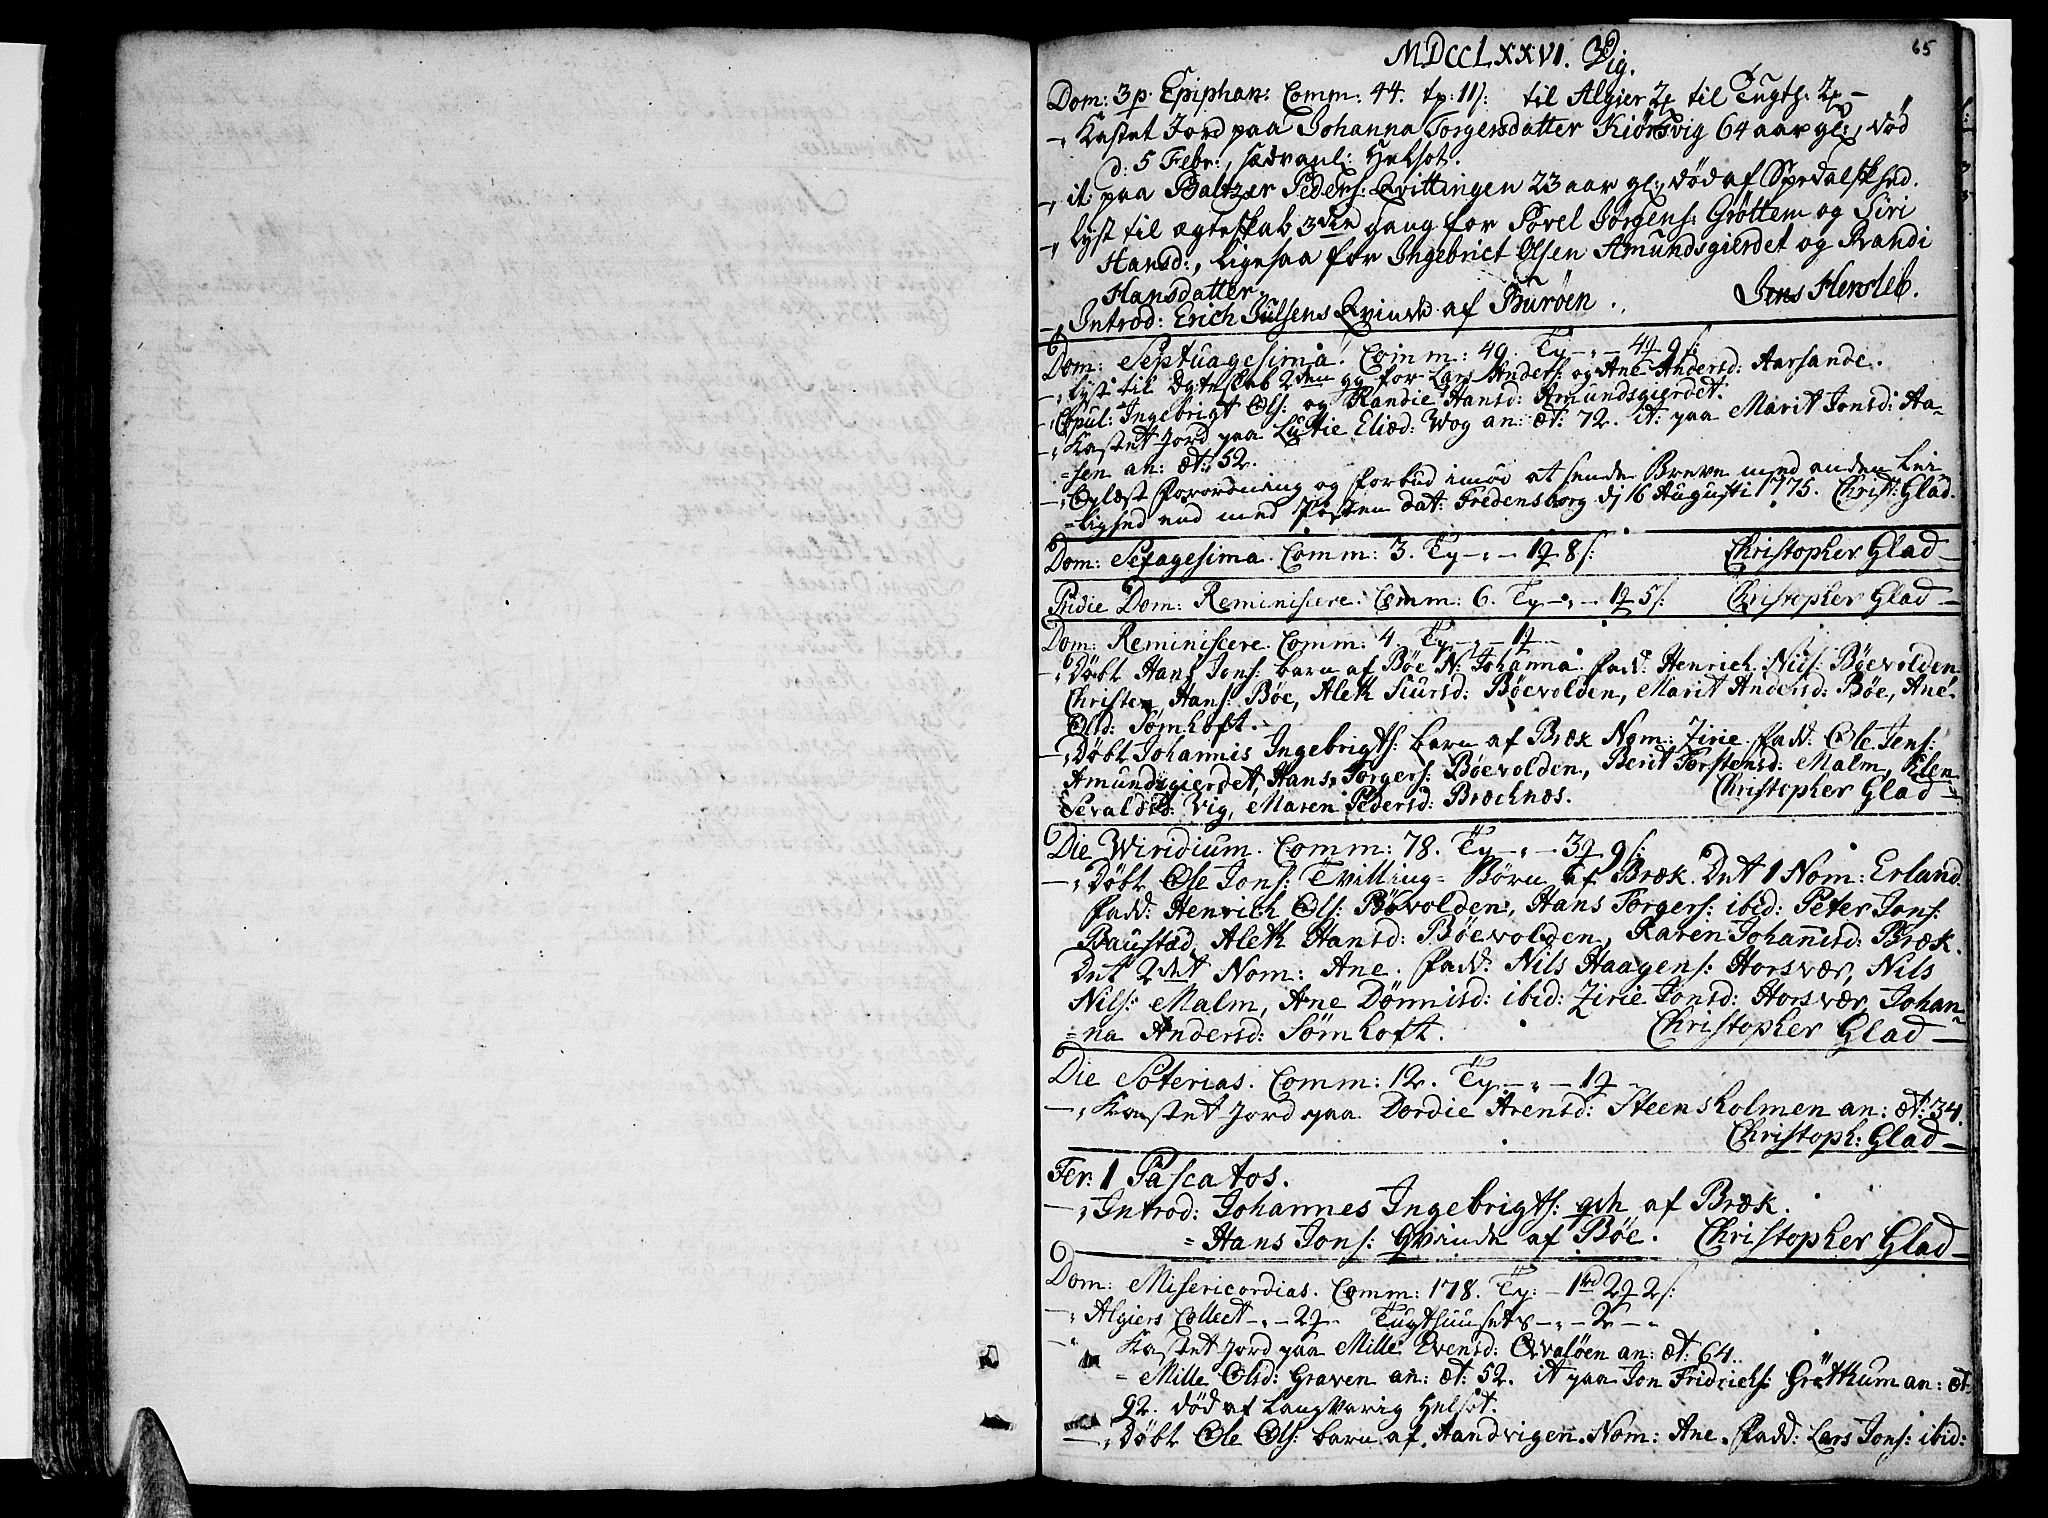 MDCCLXXVI. 65
Dom: 3 p. Epiphan: Comm: 44. til Algier til Tugth:
Kastet Jord paa Johanna Torgersdatter Kiørsvig 64 aar gl:, død
d: 5 Febr:, sædvanl: Helsot.
it: paa Baltzer Peders: Qvittingen 23 aar gl:, død af Spedalskhed.
Lyst til ægteskab 3die gang for Povel Jørgens: Grøttem og Siri
Hansd:, ligesaa for Ingebrict Olsen Amundsgierdet og Randi
Hansdatter.
Introd: Erich Julsens Qvinde af Burøen. Jens Hersleb.
Dom: Septuagesima. Comm: 49.
Lyst til Egteskab 2den gg for Lars Anders: og Ane Andersd: Aarsande.
Copul: Ingebrigt Ols: og Randie Hansd: Amundsgierdet.
Kastet Jord paa Eliæd: Wog an: æt: 72. it: paa Marit Jonsd: Aa-
=sen an: æt: 52.
Oplæst Forordning og Forbud imod at sende Breve med anden Lei-
=lighed end med Posten dat: Fredensborg d: 16 Augusti 1775. Christ: Glad.
Dom: Sexagesima. Comm: 3. Christopher Glad
Pridie Dom: Reminiscere. Comm: 6. Christopher Glad
Dom: Reminiscere. Comm: 4.
Døbt Hans Jons: barn af Bøe N: Johanna. Fadd: Henrich Nils: Bøevolden
Christen Hans: Bøe, Aleth Siursd: Bøevolden, Marit Andersd: Bøe, Ane
Olsd: Sømhoft.
Døbt Johannis Ingebrigts: barn af Bræk Nom: Zirie. Fadd: Ole Jens:
Amundsgierdet, Hans Torgers: Bøevolden, Berit Torstensd: Malm, Elen
Sevaldsd: Vig, Maren Pedersd: Bræchnæs. Christopher Glad
Die Wiridium. Comm: 78.
Døbt Ole Jons: Tvilling= Børn af Bræk. Det 1 Nom: Erland.
Fadd: Henrich Ols: Bøvolden, Hans Torgers: ibid: Peter Jons:
Baustad, Aleth Hansd: Bøevolden, Karen Johannsd: Bræk.
Det 2det Nom: Ane. Fadd: Nils Haagens: Horsvær, Nils
Nils: Malm, Ane Dønnisd: ibid: Zirie Jonsd: Horsvær, Johan-
=na Andersd: Sømhoft. Christopher Glad
Die Soterias. Comm: 12.
Kastet Jord paa Dordie Arensd: Steensholmen an: æt: 34.
Christoph: Glad
Fer: 1 Pascatos.
Introd: Johannes Ingebrigts: qvh af Bræk.
= Hans Jons: Qvinde af Bøe. Christopher Glad
Dom: Misericordias. Comm: 178.
Algiers Collect Tugthuusets
Kastet Jord paa Mille Evensd: Qvaløen an: æt: 64.
= Mille Olsd: Graven an: æt: 52. it paa Jon Fridrichs: Grøthum an: æt:
92. død af langvarig Helsot.
Døbt Ole Ols: barn af Aandvigen. Nom: Ane. Fadd: Lars Jons: ibid: